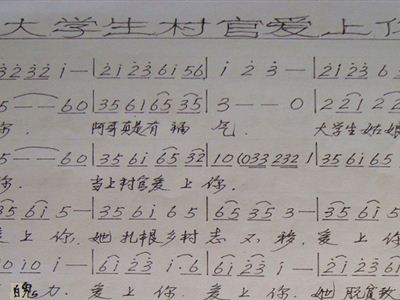 大学生村官爱上你
3 2 3 2 i — | 2i 23 6i 56 | i 2 3 — | 2i 23 6
5 — — 60 | 35 61 65 35 | 3 — — 0 | 2 21 22
你. 阿哥真是有 福 气. 大学生姑娘
5 — — 60 | 35 6i 65 32 | 10 (033 232 1 | 35 6i 65
你. 当上村官爱 上 你.
35 6i 5 — | 35 6i 65 | 65 35 3 — | 35 6i 5
上 你. 她 扎根乡村 志 不 移. 爱 上
0i0 i0 | 6i 23 i·6 | 6i 23 i — | 2i 23
魄 力. 爱 上 你 爱 上 你. 她 脱贫致